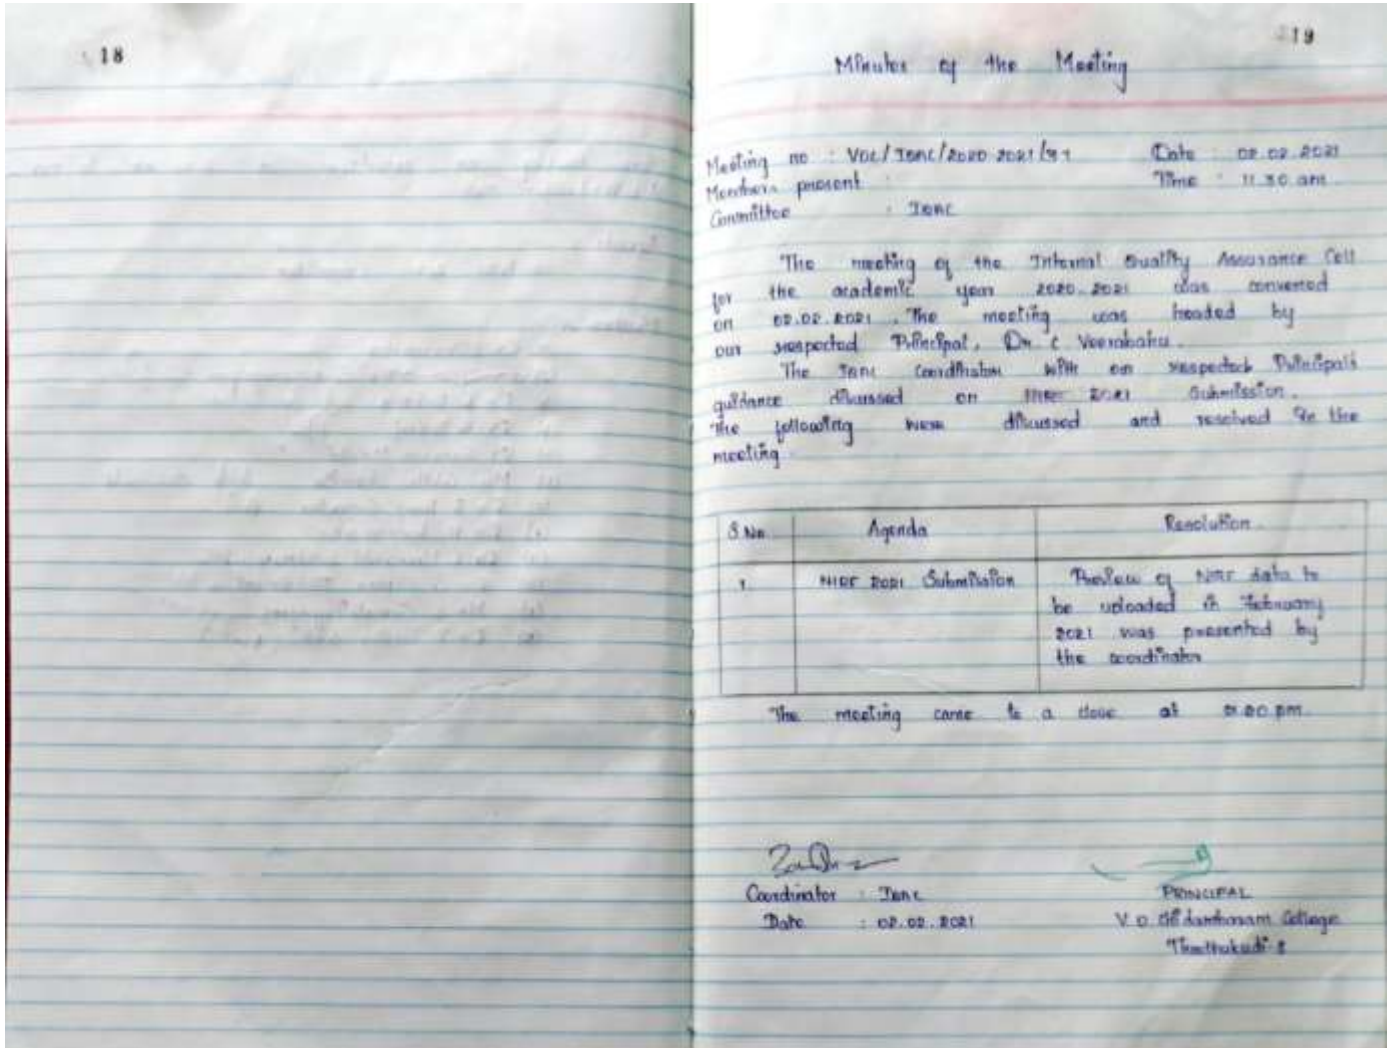 18
19
Minutes of the Meeting
Meeting no : VOC/IQAC/2020-2021/ Date : 02.02.2021
Members present : Time : 11.30 am
Committee : IQAC
The meeting of the Internal Quality Assurance Cell
for the academic year 2020-2021 was convened
on 02.02.2021. The meeting was headed by
our respected Principal, Dr. C Veerabahu.
The IQAC Coordinator with our respected Principal's
guidance discussed on NIRF 2021 Submission.
The following were discussed and resolved in the
meeting
S.No Agenda Resolution
1. NIRF 2021 Submission Preview of NIRF data to
be uploaded in February
2021 was presented by
the coordinator
The meeting came to a close at pm
Coordinator : IQAC PRINCIPAL
Date : 02.02.2021 V.O.Chidambaram College
Thoothukudi-8